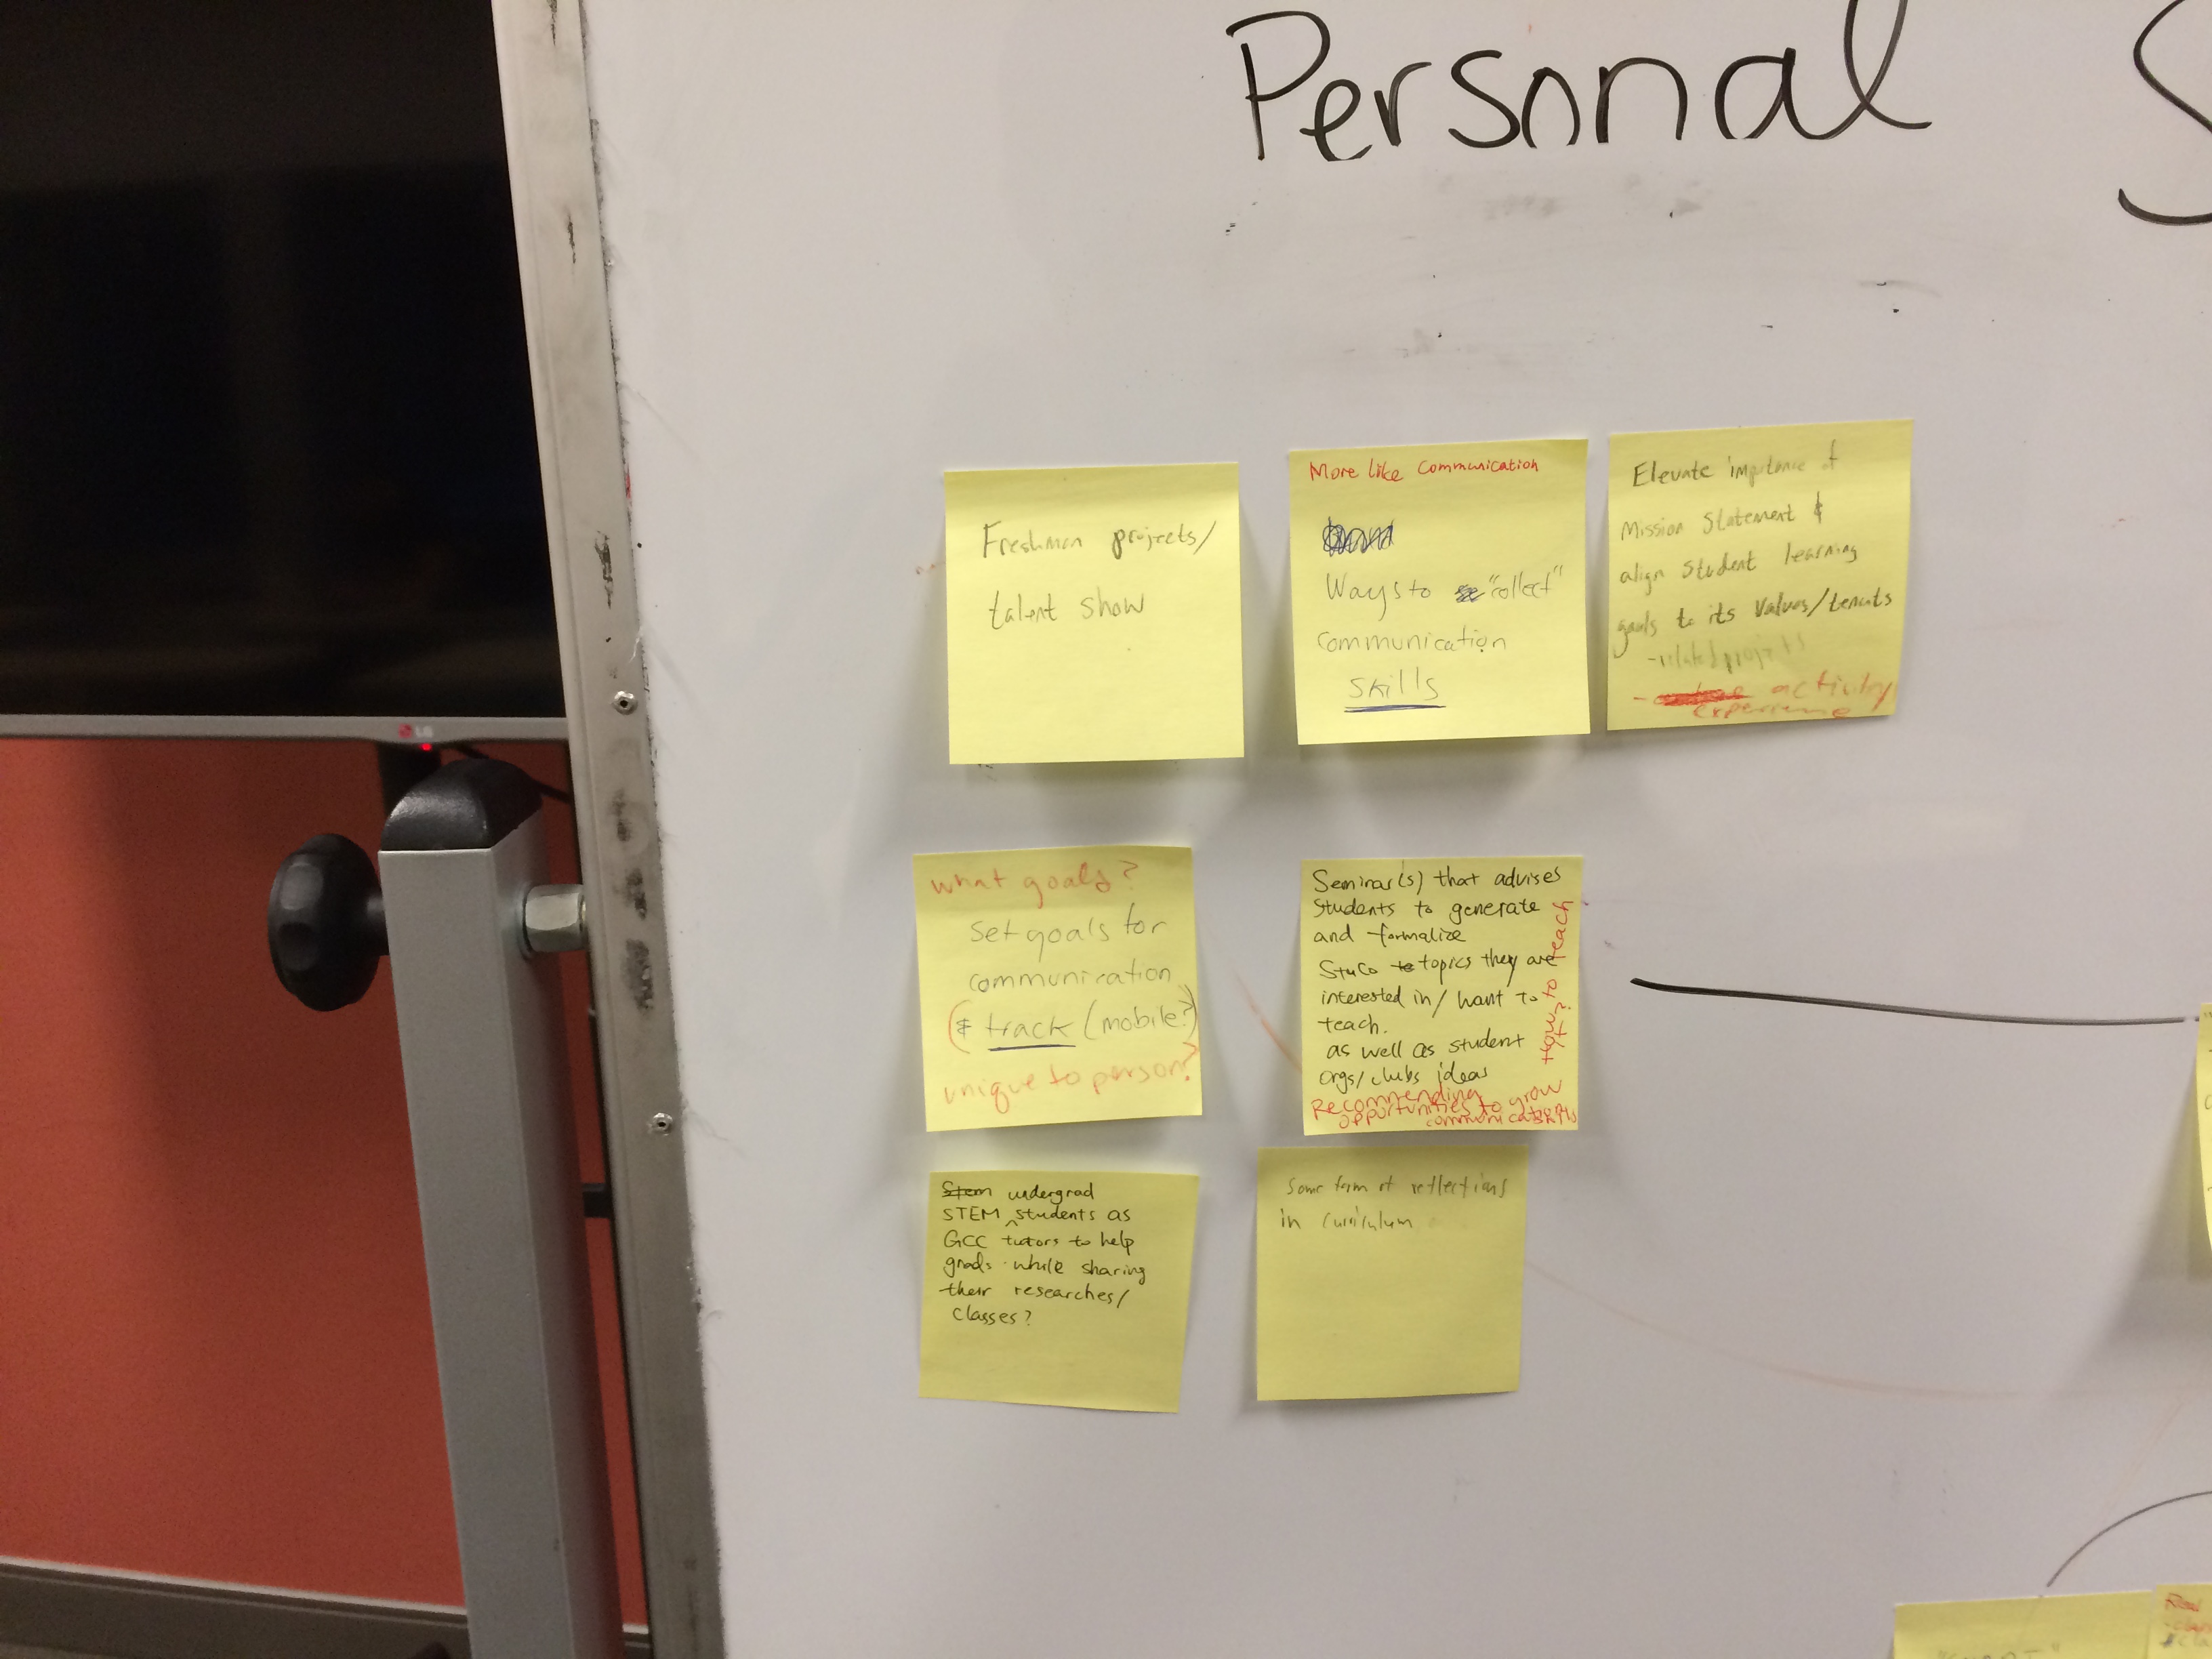 Personal S
LG
Freshman projects/
talent show
More like communication
Ways to "collect"
communication
skills
Elevate importance of
Mission Statement &
align student learning
goals to its values/tenents
- related projects
- activity
experience
what goals?
set goals for
communication
(& track (mobile?)
unique to person?
Seminar(s) that advises
students to generate
and formalize
StuCo topics they are
interested in/ want to
teach.
as well as student
orgs/clubs ideas
How to teach
it?
Recommending
opportunities to grow
communication skills
Stem undergrad
STEM ^ students as
GCC tutors to help
grads while sharing
their researches/
classes?
Some form of reflections
in curriculum
Real